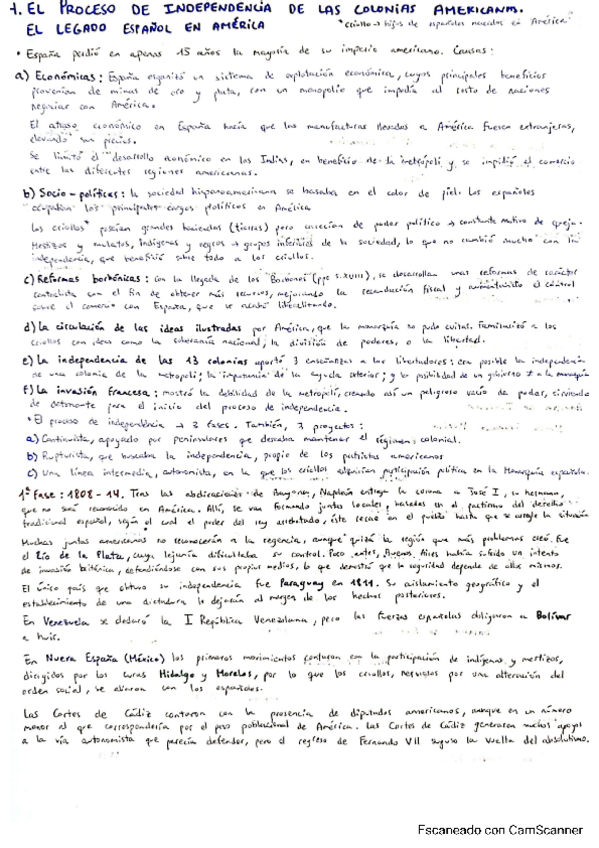 1. EL PROCESO DE INDEPENDENCIA DE LAS COLONIAS AMERICANAS.
EL LEGADO ESPAÑOL EN AMÉRICA
*criollo → hijos de españoles nacidos en América*
• España perdió en apenas 15 años la mayoría de su imperio americano. Causas:
a) Económicas: España organizó un sistema de explotación económica, cuyos principales beneficios
provenían de minas de oro y plata, con un monopolio que impedía al resto de naciones
negociar con América.
El atraso económico en España hacía que las manufacturas llevadas a América fuesen extranjeras,
elevando sus precios.
Se limitó el desarrollo económico en las Indias, en beneficio de la metrópoli y se impidió el comercio
entre las diferentes regiones americanas.
b) Socio-políticas: la sociedad hispanoamericana se basaba en el color de piel. Los españoles
ocupaban los principales cargos políticos en América
Los criollos poseían grandes haciendas (tierras) pero carecían de poder político → constante motivo de queja.
Mestizos y mulatos, indígenas y negros → grupos inferiores de la sociedad, lo que no cambió mucho con la
independencia, que benefició sobre todo a los criollos.
c) Reformas borbónicas: con la llegada de los Borbones (ppc s.XVIII), se desarrollan unas reformas de carácter
centralista con el fin de obtener más recursos, mejorando la recaudación fiscal y aumentando el control
sobre el comercio con España, que se acabó liberalizando.
d) La circulación de las ideas ilustradas por América, que la monarquía no pudo evitar. Familiarizó a los
criollos con ideas como la soberanía nacional, la división de poderes, o la libertad.
e) La independencia de las 13 colonias aportó 3 enseñanzas a los libertadores: era posible la independencia
de una colonia de la metrópoli; la importancia de la ayuda exterior; y la posibilidad de un gobierno ≠ a la monarquía
f) La invasión francesa: mostró la debilidad de la metrópoli, creando así un peligroso vacío de poder, sirviendo
de detonante para el inicio del proceso de independencia.
• El proceso de independencia → 3 fases. También, 3 proyectos:
a) Continuista, apoyado por peninsulares que deseaba mantener el régimen colonial.
b) Rupturista, que buscaba la independencia, propio de los patriotas americanos
c) Una línea intermedia, autonomista, en la que los criollos adquirían participación política en la Monarquía española.
1ª Fase: 1808-14. Tras las abdicaciones de Bayona, Napoleón entrega la corona a José I, su hermano,
que no será reconocido en América. Allí, se van formando juntas locales, basadas en el derecho
tradicional español, según el cual el poder del rey ausentado, este recae en el pueblo hasta que se arregle la situación
Muchas juntas americanas no reconocerán a la regencia, aunque quizá la región que más problemas creó fue
el Río de la Plata, cuya lejanía dificultaba su control. Poco antes, Buenos Aires había sufrido un intento
de invasión británica, defendiéndose con sus propios medios, lo que demostró que la seguridad depende de ellos mismos.
El único país que obtuvo su independencia fue Paraguay en 1811. Su aislamiento geográfico y el
establecimiento de una dictadura le dejarán al margen de los hechos posteriores.
En Venezuela se declaró la I República Venezolana, pero las fuerzas españolas obligaron a Bolívar
a huir.
En Nueva España (México) los primeros movimientos contaron con la participación de indígenas y mestizos,
dirigidos por los curas Hidalgo y Morelos, por lo que los criollos, nerviosos por una alteración del
orden social, se aliaron con los españoles.
Las Cortes de Cádiz contaron con la presencia de diputados americanos, aunque en un número
menor al que correspondería por el peso poblacional de América. Las Cortes de Cádiz generaron muchos apoyos
a la vía autonomista que parecía defender, pero el regreso de Fernando VII supuso la vuelta del absolutismo.
Escaneado con CamScanner